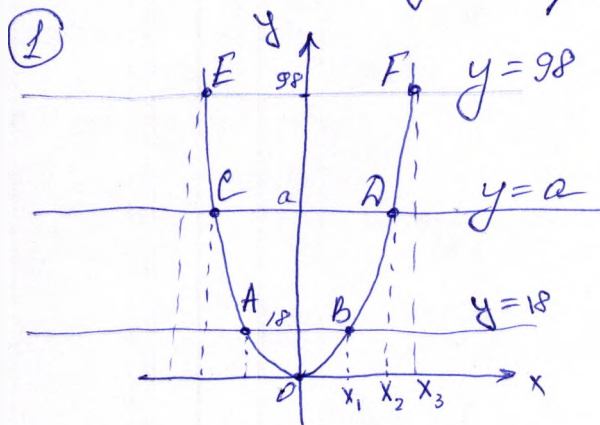 1
y
E F y = 98
98
C a D y = a
A 18 B y = 18
O x₁ x₂ x₃ x